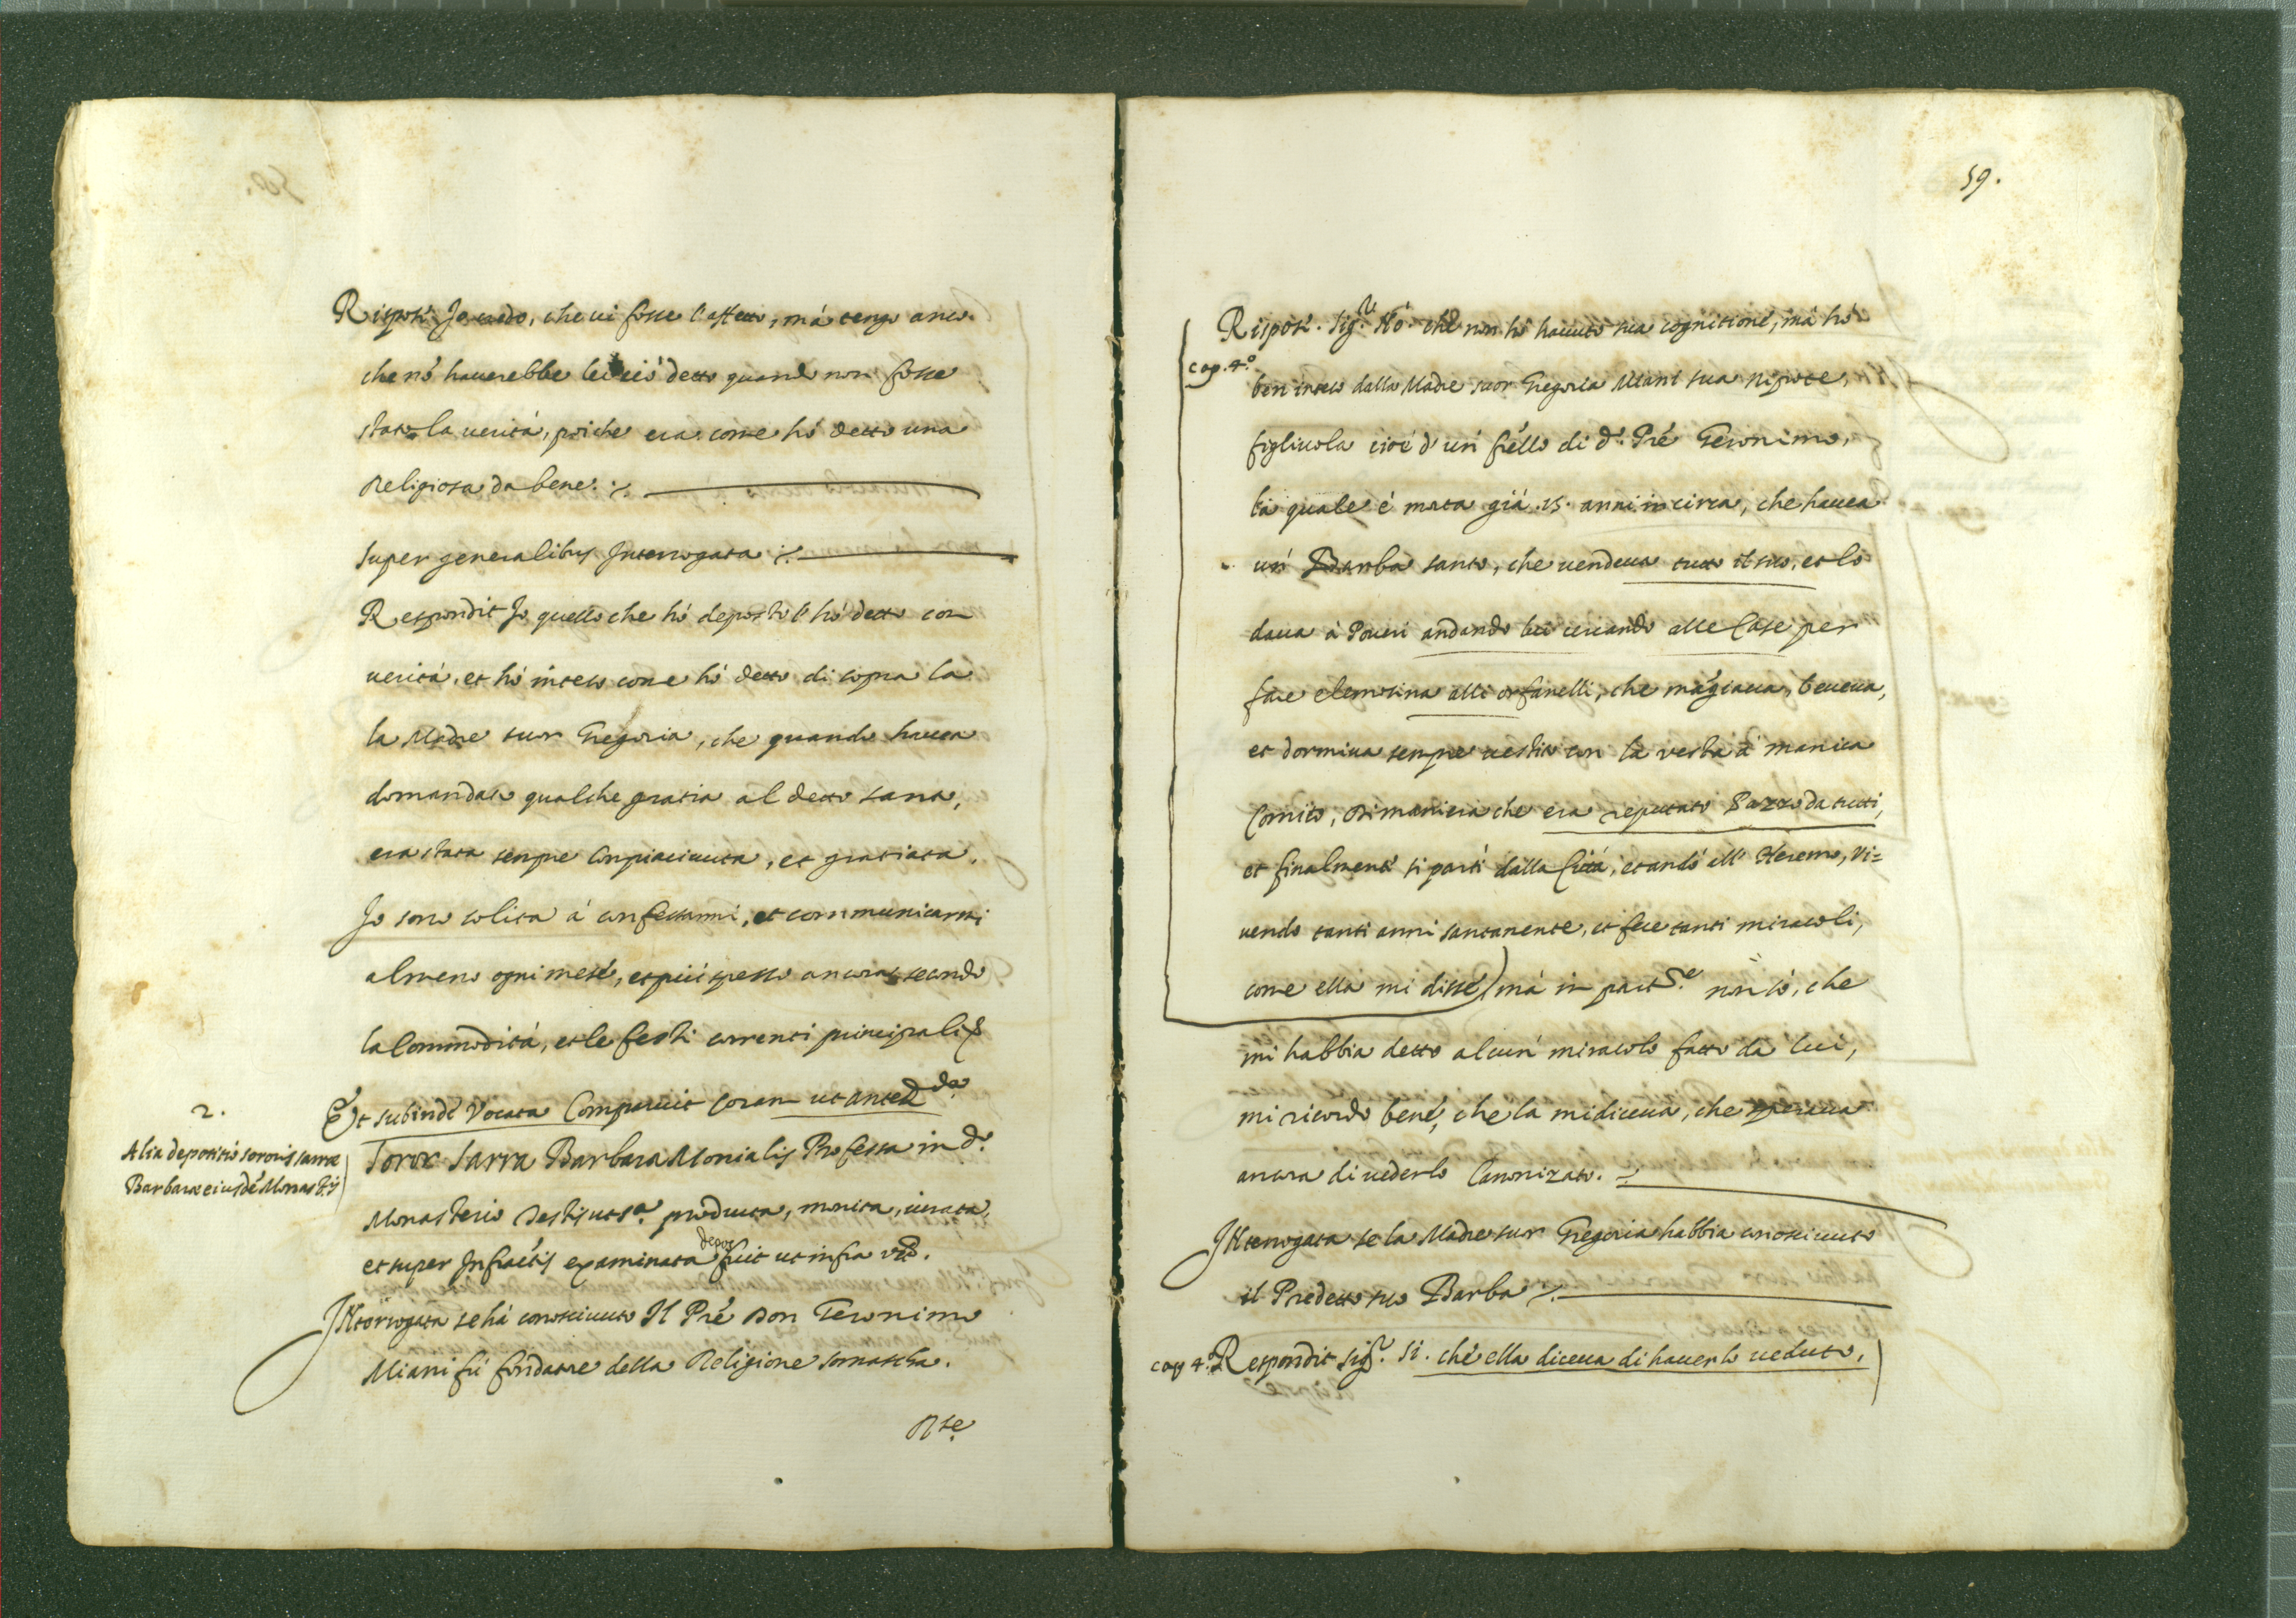 Rispose Io credo, che vi fosse l'affetto, má tengo anco.
che nó hauerebbe lei ció detto quando non fosse
stato la veritá, poiche era come hó detto una
Religiosa da bene.
Super generalibus Interrogata
Respondit Io quello che hó deposto l'hó detto con
veritá, et hó inteso come hó detto di sopra la
la Madre suor Gregoria, che quando haueua
domandato qualche gratia al detto santo,
era stata sempre Compiaciuuta, et gratiata.
Io sono solita á confessarmi, et communicarmi
almeno ogni mese, et piú spesso ancora secondo
la Commoditá, et le festi correnti principali
2.
Alia depositio sororis sarræ
Barbaræ eiusdé Monastis
Et subindé Vocata Comparuit Coram ut anted
Soror Sarra Barbara Monialis Professa in do
Monasterio Testis ut sa producta, monita, iurata,
et super Infractis examinata depos fuit ut infra vo.
INterrogata se há conosciuuto Il Pré Don Geronimo
Miani fú fondatore della Religione somascha.
Rse
59.
Rispose. Sigr Nó. che non hó hauuto sua cognitione, má hó
cap. 4.o
ben inteso dalla Madre suor Gregoria Miani sua Nipote,
figliuola cioé d'un frello di do Pré Geronimo,
la quale é morta giá .15. anni in circa, che hauea
un Barba santo, che vendeua tutto il suo, et lo
daua á Poueri andando lui cercando alle Case per
fare elemosina alli orfanelli, che mágiaua, beueua,
et dormiua sempre vestito con la vesta á manica
Comito, di maniera che era reputato Pazzo da tutti,
et finalmente si partí dalla Cittá, et andó all' Heremo, Vi=
uendo tanti anni santamente, et fece tanti miracoli,
come ella mi disse, má in partre non só, che
mi habbia detto alcun miracolo fatto da lui,
mi ricordo bene, che la mi diceua, che speraua
ancora di uederlo Canonizato.
INterrogata se la Madre suor Gregoria habbia conosciuuto
il Predetto suo Barba
cap 4.o Respondit sigr. si. che ella diceua di hauerlo ueduto,